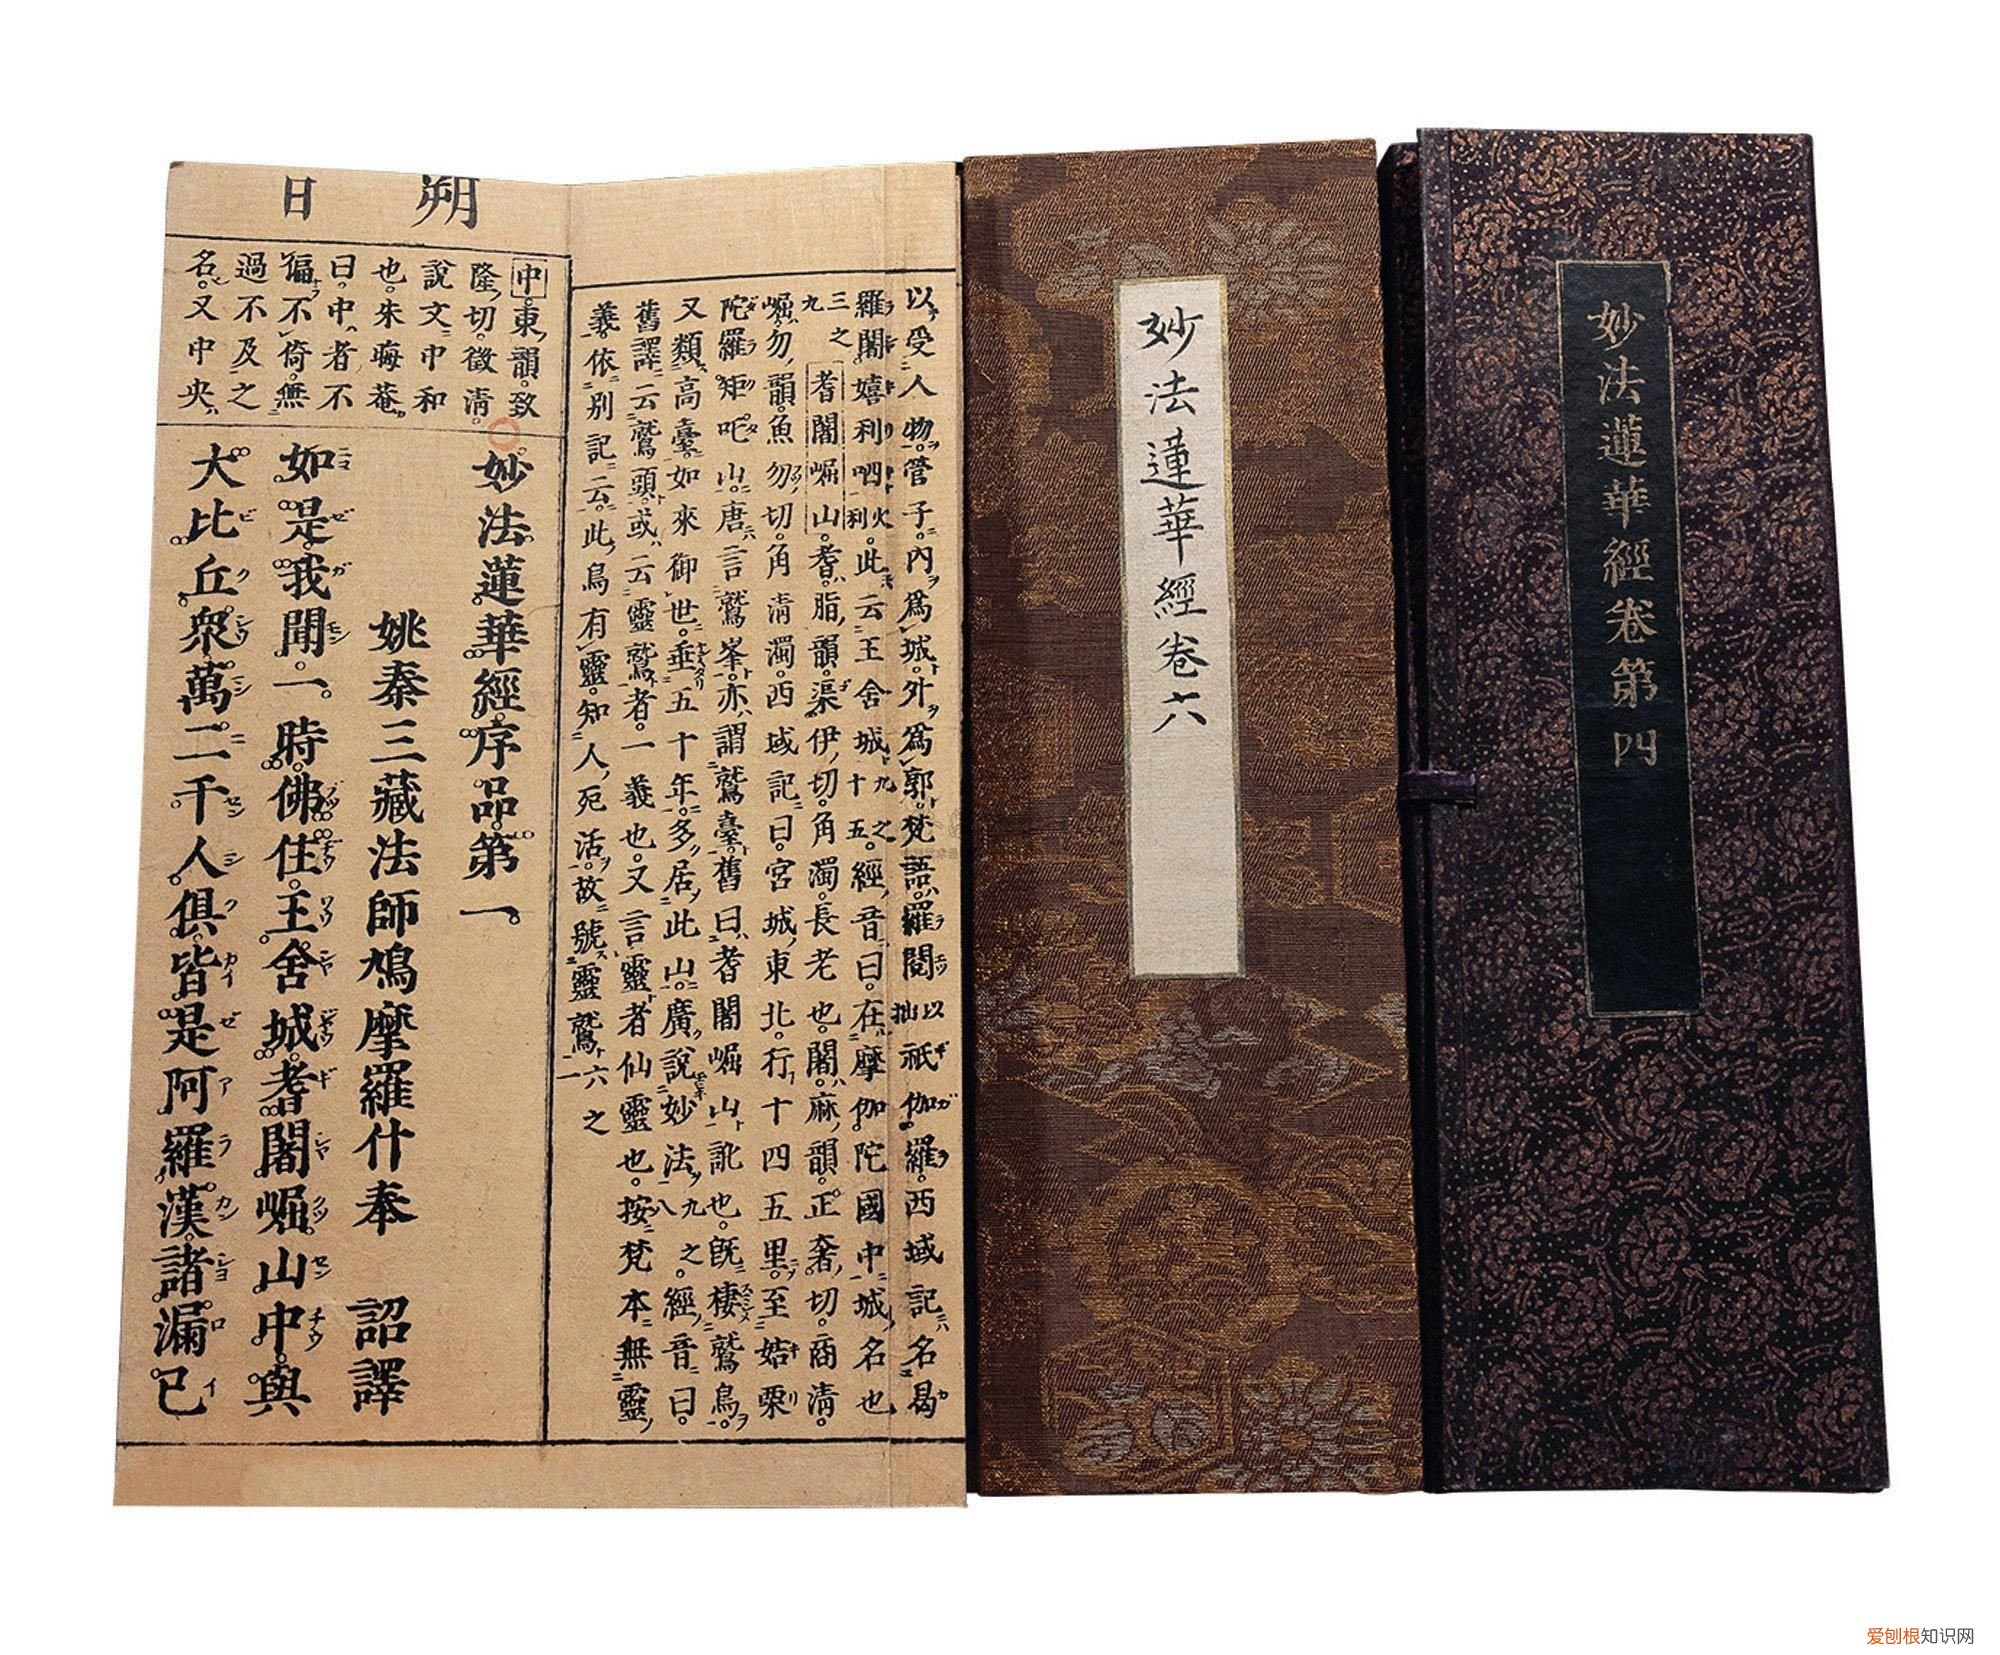 妙法蓮華經卷第四
妙法蓮華經卷六
以受人物。管子。内爲城。外爲郭。梵語。羅閱以拙祇伽羅。西域記。名曷
羅闍嬉利呬火利。此云王舍城十五九之。經音曰。在摩伽陀國中城名也
三九之耆闍崛山。耆。脂韻。渠伊切。角濁。長老也。闍。麻韻。正奢切。商清。
崛。勿韻。魚勿切。角清濁。西域記曰。宮城東北。行十四五里。至姞栗
陀羅矩吒山。唐言鷲峯。亦謂鷲臺。舊曰耆闍崛山訛也。既棲鷲鳥。
又類高臺。如來御世。垂五十年。多居此山。廣說妙法八九之。經音曰。
舊譯云鷲頭。或云靈鷲者。一義也。又言靈者仙靈也。按梵本無靈
義。依別記云。此鳥有靈。知人死活。故號靈鷲一六之
朔日
中。東韻。致
隆切。徵清。
說文中和
也。朱晦菴
曰。中者不
偏不倚。無
過不及之
名。又中央。
妙法蓮華經序品第一。
姚秦三藏法師鳩摩羅什奉 詔譯
如是我聞。一時佛住王舍城耆闍崛山中。與
大比丘衆萬二千人俱。皆是阿羅漢。諸漏已
爱刨根知识网